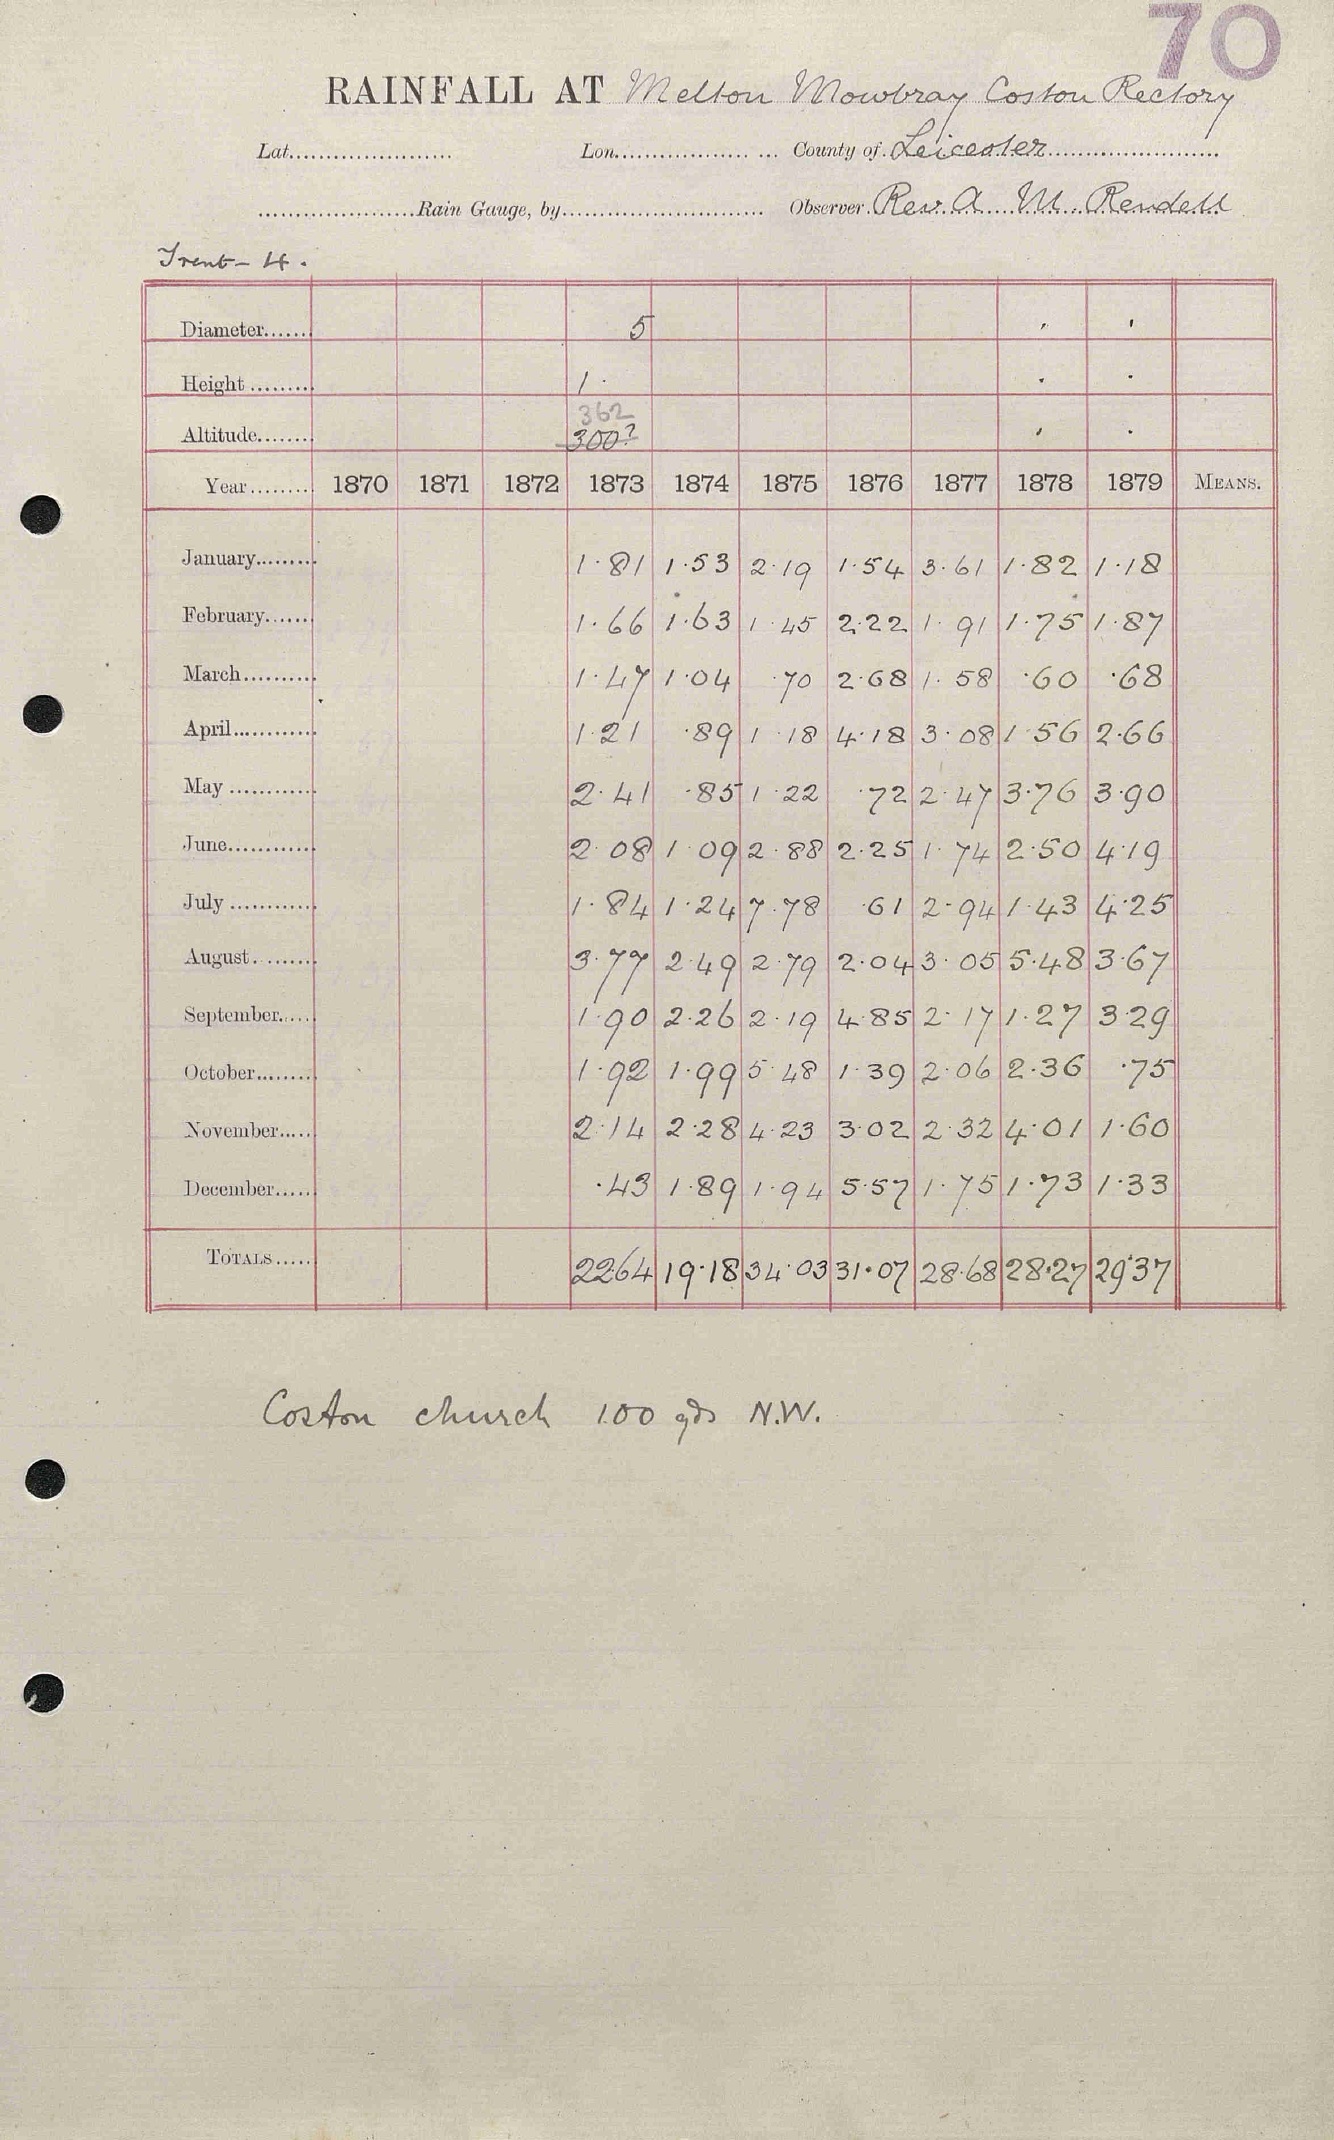 70
RAINFALL AT Melton Mowbray Coston Rectory
Lat....................... Lon...................... County of Leicester
.....................Rain Gauge, by........................... Observer Rev. A M Rendell
Trent - 4.
Diameter...... 5 " "
Height ......... 1 . . .
362
Altitude........ 300? " .
Year......... 1870 1871 1872 1873 1874 1875 1876 1877 1878 1879 MEANS.
January......... 1.81 1.53 2.19 1.54 3.61 1.82 1.18
February....... 1.66 1.63 1.45 2.22 1.91 1.75 1.87
March.......... 1.47 1.04 .70 2.68 1.58 .60 .68
April............ 1.21 .89 1.18 4.18 3.08 1.56 2.66
May ............ 2.41 .85 1.22 .72 2.47 3.76 3.90
June............ 2.08 1.09 2.88 2.25 1.74 2.50 4.19
July ............ 1.84 1.24 7.78 .61 2.94 1.43 4.25
August......... 3.77 2.49 2.79 2.04 3.05 5.48 3.67
September..... 1.90 2.26 2.19 4.85 2.17 1.27 3.29
October......... 1.92 1.99 5.48 1.39 2.06 2.36 .75
November..... 2.14 2.28 4.23 3.02 2.32 4.01 1.60
December...... .43 1.89 1.94 5.57 1.75 1.73 1.33
TOTALS..... 22.64 19.18 34.03 31.07 28.68 28.27 29.37
Coston church 100 yds N.W.